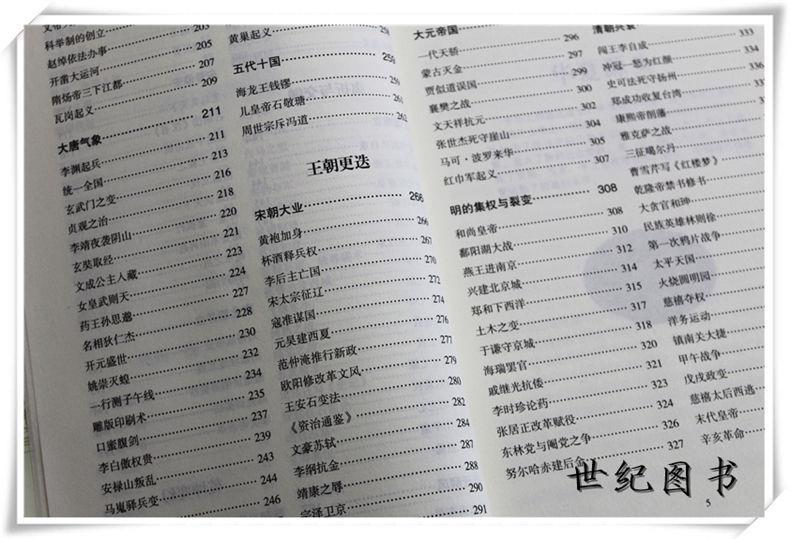 科举制的创立
赵绰依法办事 203
开凿大运河 205
隋炀帝三下江都 207
瓦岗起义 209
大唐气象 211
李渊起兵 211
统一全国 213
玄武门之变 216
贞观之治 218
李靖夜袭阴山 220
玄奘取经 221
文成公主入藏 223
女皇武则天 224
药王孙思邈 227
名相狄仁杰 228
开元盛世 230
姚崇灭蝗 232
一行测子午线 234
雕版印刷术 235
口蜜腹剑 237
李白傲权贵 239
安禄山叛乱 243
马嵬驿兵变 244
246
黄巢起义 258
五代十国 259
海龙王钱镠 260
儿皇帝石敬瑭 261
周世宗斥冯道 262
王朝更迭
宋朝大业 266
黄袍加身 266
杯酒释兵权 267
李后主亡国 270
宋太宗征辽 272
寇准谋国 274
元昊建西夏 276
范仲淹推行新政 277
欧阳修改革文风 279
王安石变法 280
《资治通鉴》 282
文豪苏轼 284
李纲抗金 287
靖康之辱 288
宗泽卫京 290
291
大元帝国 296
一代天骄 296
蒙古灭金 297
贾似道误国 299
襄樊之战 300
文天祥抗元 302
张世杰死守崖山 304
马可·波罗来华 305
红巾军起义 307
明的集权与裂变 308
和尚皇帝 308
鄱阳湖大战 310
燕王进南京 312
兴建北京城 314
郑和下西洋 315
土木之变 317
于谦守京城 318
海瑞罢官 320
戚继光抗倭 321
李时珍论药 323
张居正改革赋役 324
东林党与阉党之争 326
努尔哈赤建后金 327
清朝兴衰 333
闯王李自成 333
冲冠一怒为红颜 334
史可法死守扬州 336
郑成功收复台湾
康熙帝削藩
雅克萨之战
三征噶尔丹
曹雪芹写《红楼梦》
乾隆帝禁书修书
大贪官和珅
民族英雄林则徐
第一次鸦片战争
太平天国
火烧圆明园
慈禧夺权
洋务运动
镇南关大捷
甲午战争
戊戌政变
慈禧太后西逃
末代皇帝
辛亥革命
5
世纪图书